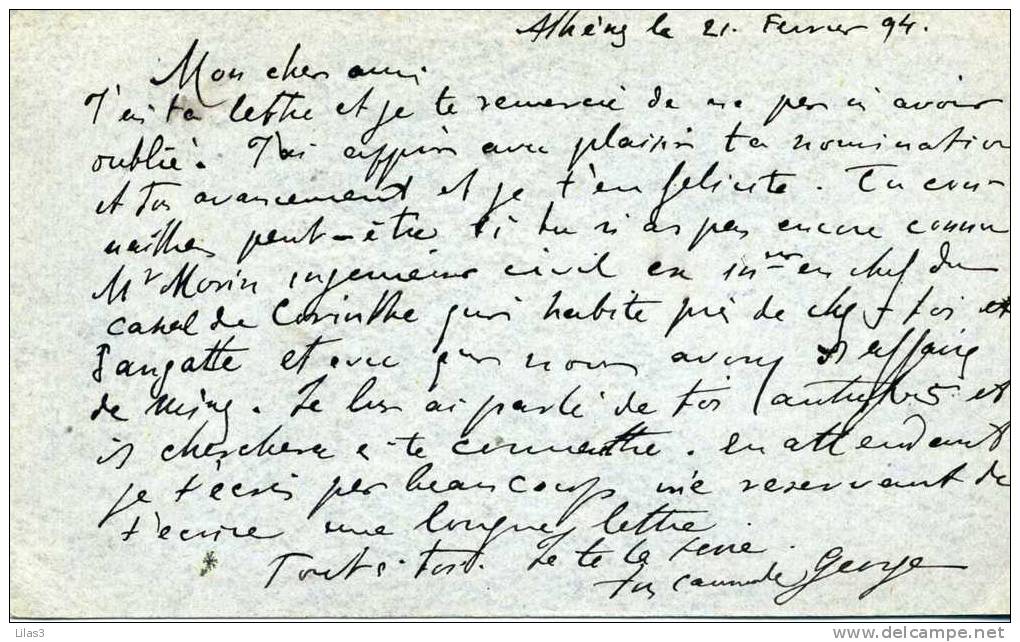 Athènes le 21. Fevrier 94.
Mon cher ami
J'ai ta lettre et je te remercie de ne pas m'avoir
oublié. J'ai appris avec plaisir ta nomination
et ton avancement et je t'en felicite. Tu con-
naitras peut-être si tu n'as pas encore connu
Mr Morin ingenieur civil ex in=eur en chef du
canal de Corinthe qui habite près de chez toi et
et avec qui nous avons affaire
de mines. Je lui ai parlé de toi et
il cherchera a te connaitre. En attendant
je t'écris pas beaucoup me reservant de
t'ecrire une longue lettre.
Tout a toi. Je te la serre.
ton camarade George
Lilas3
www.delcampe.net